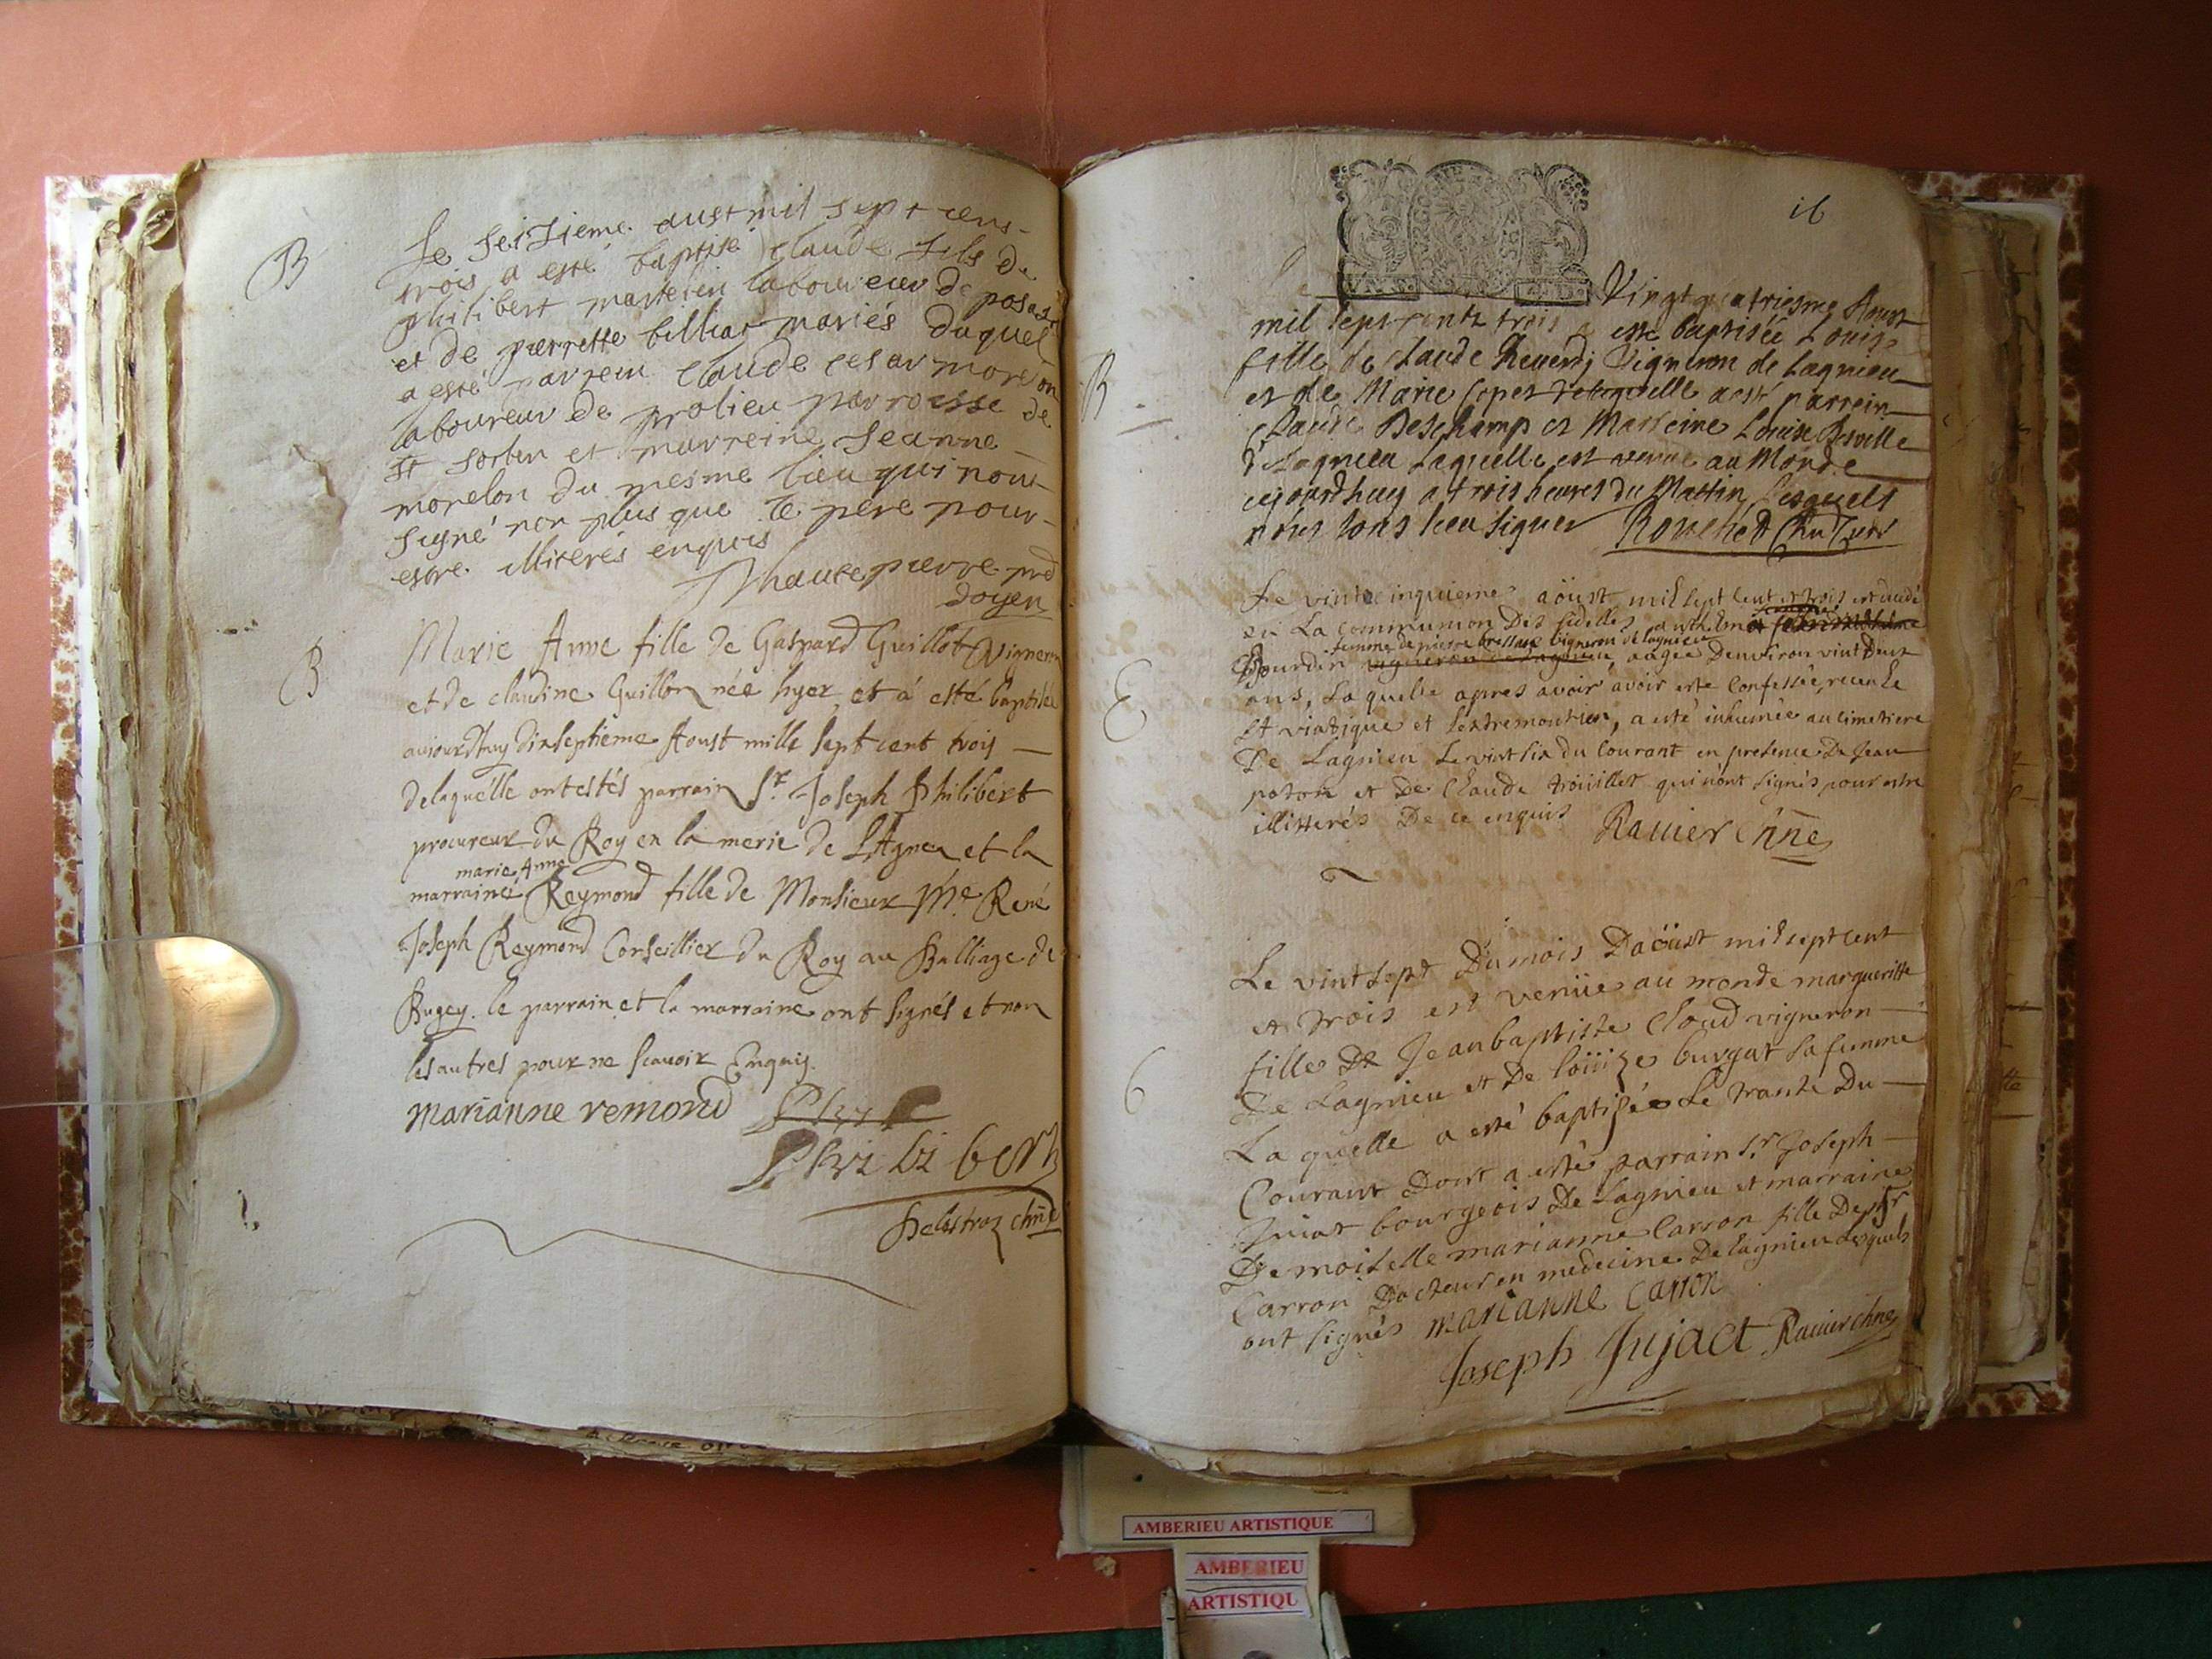 B
Le seizieme aust mil sept cens
trois a esté baptisé claude fils de
philibert martelin laboureur de posast
et de pierrette billiat mariés duquel
a esté parrein claude cesar morelon
laboureur de prolieu parroisse de
St sorlin et marreine Jeanne
morelon du mesme lieu qui nont
signé non plus que le pere pour
estre illiterés enquis
haute pierre prd
doyen
B
Marie Anne fille de Gaspard Guillot Vigneron
et de claudine Guillon née hyer et á esté baptisée
aujourdhuy dixseptieme Aoust mille sept cent trois
delaquelle ont estés parrain Sr. Joseph Philibert
procureur du Roy en la merie de LAgneu et la
marie Anne
marraine Reymond fille de Monsieur Me. René
Joseph Reymond Conseillier du Roy au Balliage de
Bugey. le parrain et la marraine ont signés et non
les autres pour ne scavoir Enquis.
marianne remond
Phi
Philibert
Delastraz chne
16
Le Vingt quatriesme Aoust
B
mil sept cents trois a esté baptisée Louise
fille de claude Reverdj Vigneron de Lagnieu
et de Marie delaquelle a esté parrein
Claude Deschamp et Marreine Louise
d Lagnieu Laquelle est venue au Monde
aujourdhuy a trois heures du Mattin Lesquels
nons sceu signer Rouched
Le vintecinquieme aöust mil sept cent et trois est decedé
en La communion Des fidelles
femme de pierre bressan vigneron de lagnieu
Bourdin vigneron de Lagnieu, aagée Denviron vint Deux
E
ans, Laquelle apres avoir avoir esté Confessée, receu Le
St viatique et Lextremontion, a esté inhumée au cimetiere
De Lagnieu Le vint six du Courant en presence De Jean
poton et De Claude trouillet qui nont signés pour estre
illitterés De ce enquis Ravier Chne
Le vint sept Du mois Daöust mil sept cent
et trois est venüe au monde margueritte
fille De Jean baptiste Cloud vigneron
De Lagnieu et De loüize burgat sa femme
6
La quelle a esté baptisée Le trante Du
Courant Dont a esté parrain Sr Joseph
Jujat bourgeois De Lagnieu et marraine
Demoiselle marianne Carron fille De Sr
Carron Docteur en medecine De Lagnieu Lesquels
ont signés marianne Carron
Joseph Jujact Ravier chne
AMBERIEU ARTISTIQUE
AMBERIEU
ARTISTIQU